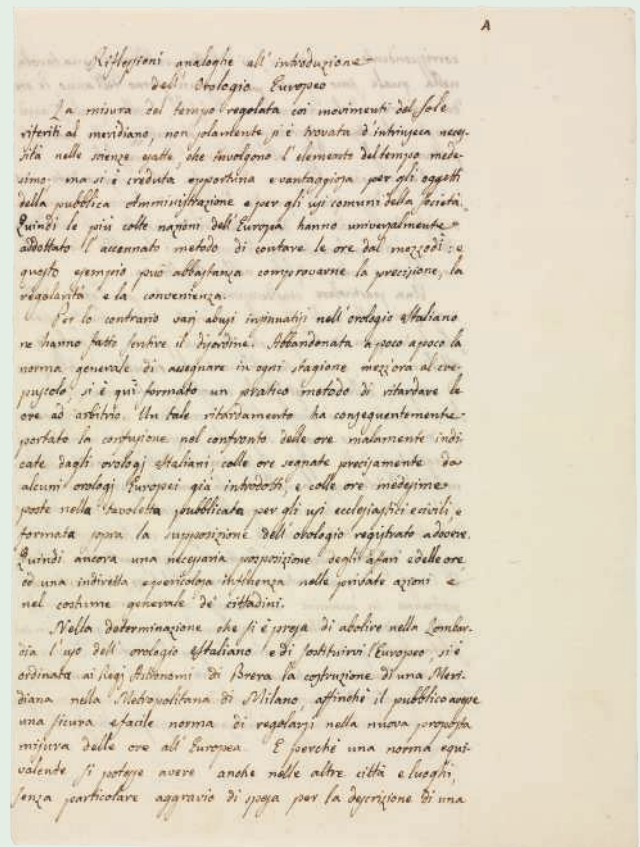 A
Riflessioni analoghe all'introduzione
dell'Orologio Europeo
La misura del tempo regolata coi movimenti del Sole
riferiti al meridiano, non solamente si è trovata d'intrinseca neces-
sità nelle scienze esatte, che involgono l'elemento del tempo mede-
simo: ma si è creduta opportuna e vantaggiosa per gli oggetti
della pubblica Amministrazione e per gli usi comuni della Società.
Quindi le più colte nazioni dell'Europa hanno universalmente
addottato l'accennato metodo di contare le ore dal mezzodì: e
questo esempio può abbastanza comprovarne la precisione, la
regolarità e la convenienza.
Per lo contrario varj abusi insinuatisi nell'orologio Italiano
ne hanno fatto sentire il disordine. Abbandonata a poco a poco la
norma generale di assegnare in ogni stagione mezz'ora al cre-
puscolo, si è quì formato un pratico metodo di ritardare le
ore ad arbitrio. Un tale ritardamento ha conseguentemente
portato la confusione nel confronto delle ore malamente indi-
cate dagli orologj Italiani, colle ore segnate precisamente da
alcuni orologj Europei già introdotti, e colle ore medesime
poste nella tavoletta pubblicata per gli usi ecclesiastici e civili, e
formata sopra la supposizione dell'orologio registrato a dovere.
Quindi ancora una necessaria posposizione degli affari e delle ore,
ed una indiretta e pericolosa influenza nelle private azioni e
nel costume generale de' cittadini.
Nella determinazione che si è presa di abolire nella Lombar-
dia l'uso dell'orologio Italiano e di sostituirvi l'Europeo, si è
ordinata ai Regj Astronomi di Brera la costruzione di una Meri-
diana nella Metropolitana di Milano, affinchè il pubblico avesse
una sicura e facile norma di regolarsi nella nuova proposta
misura delle ore all'Europea. E perchè una norma equi-
valente si potesse avere anche nelle altre città e luoghi,
senza particolare aggravio di spesa per la descrizione di una